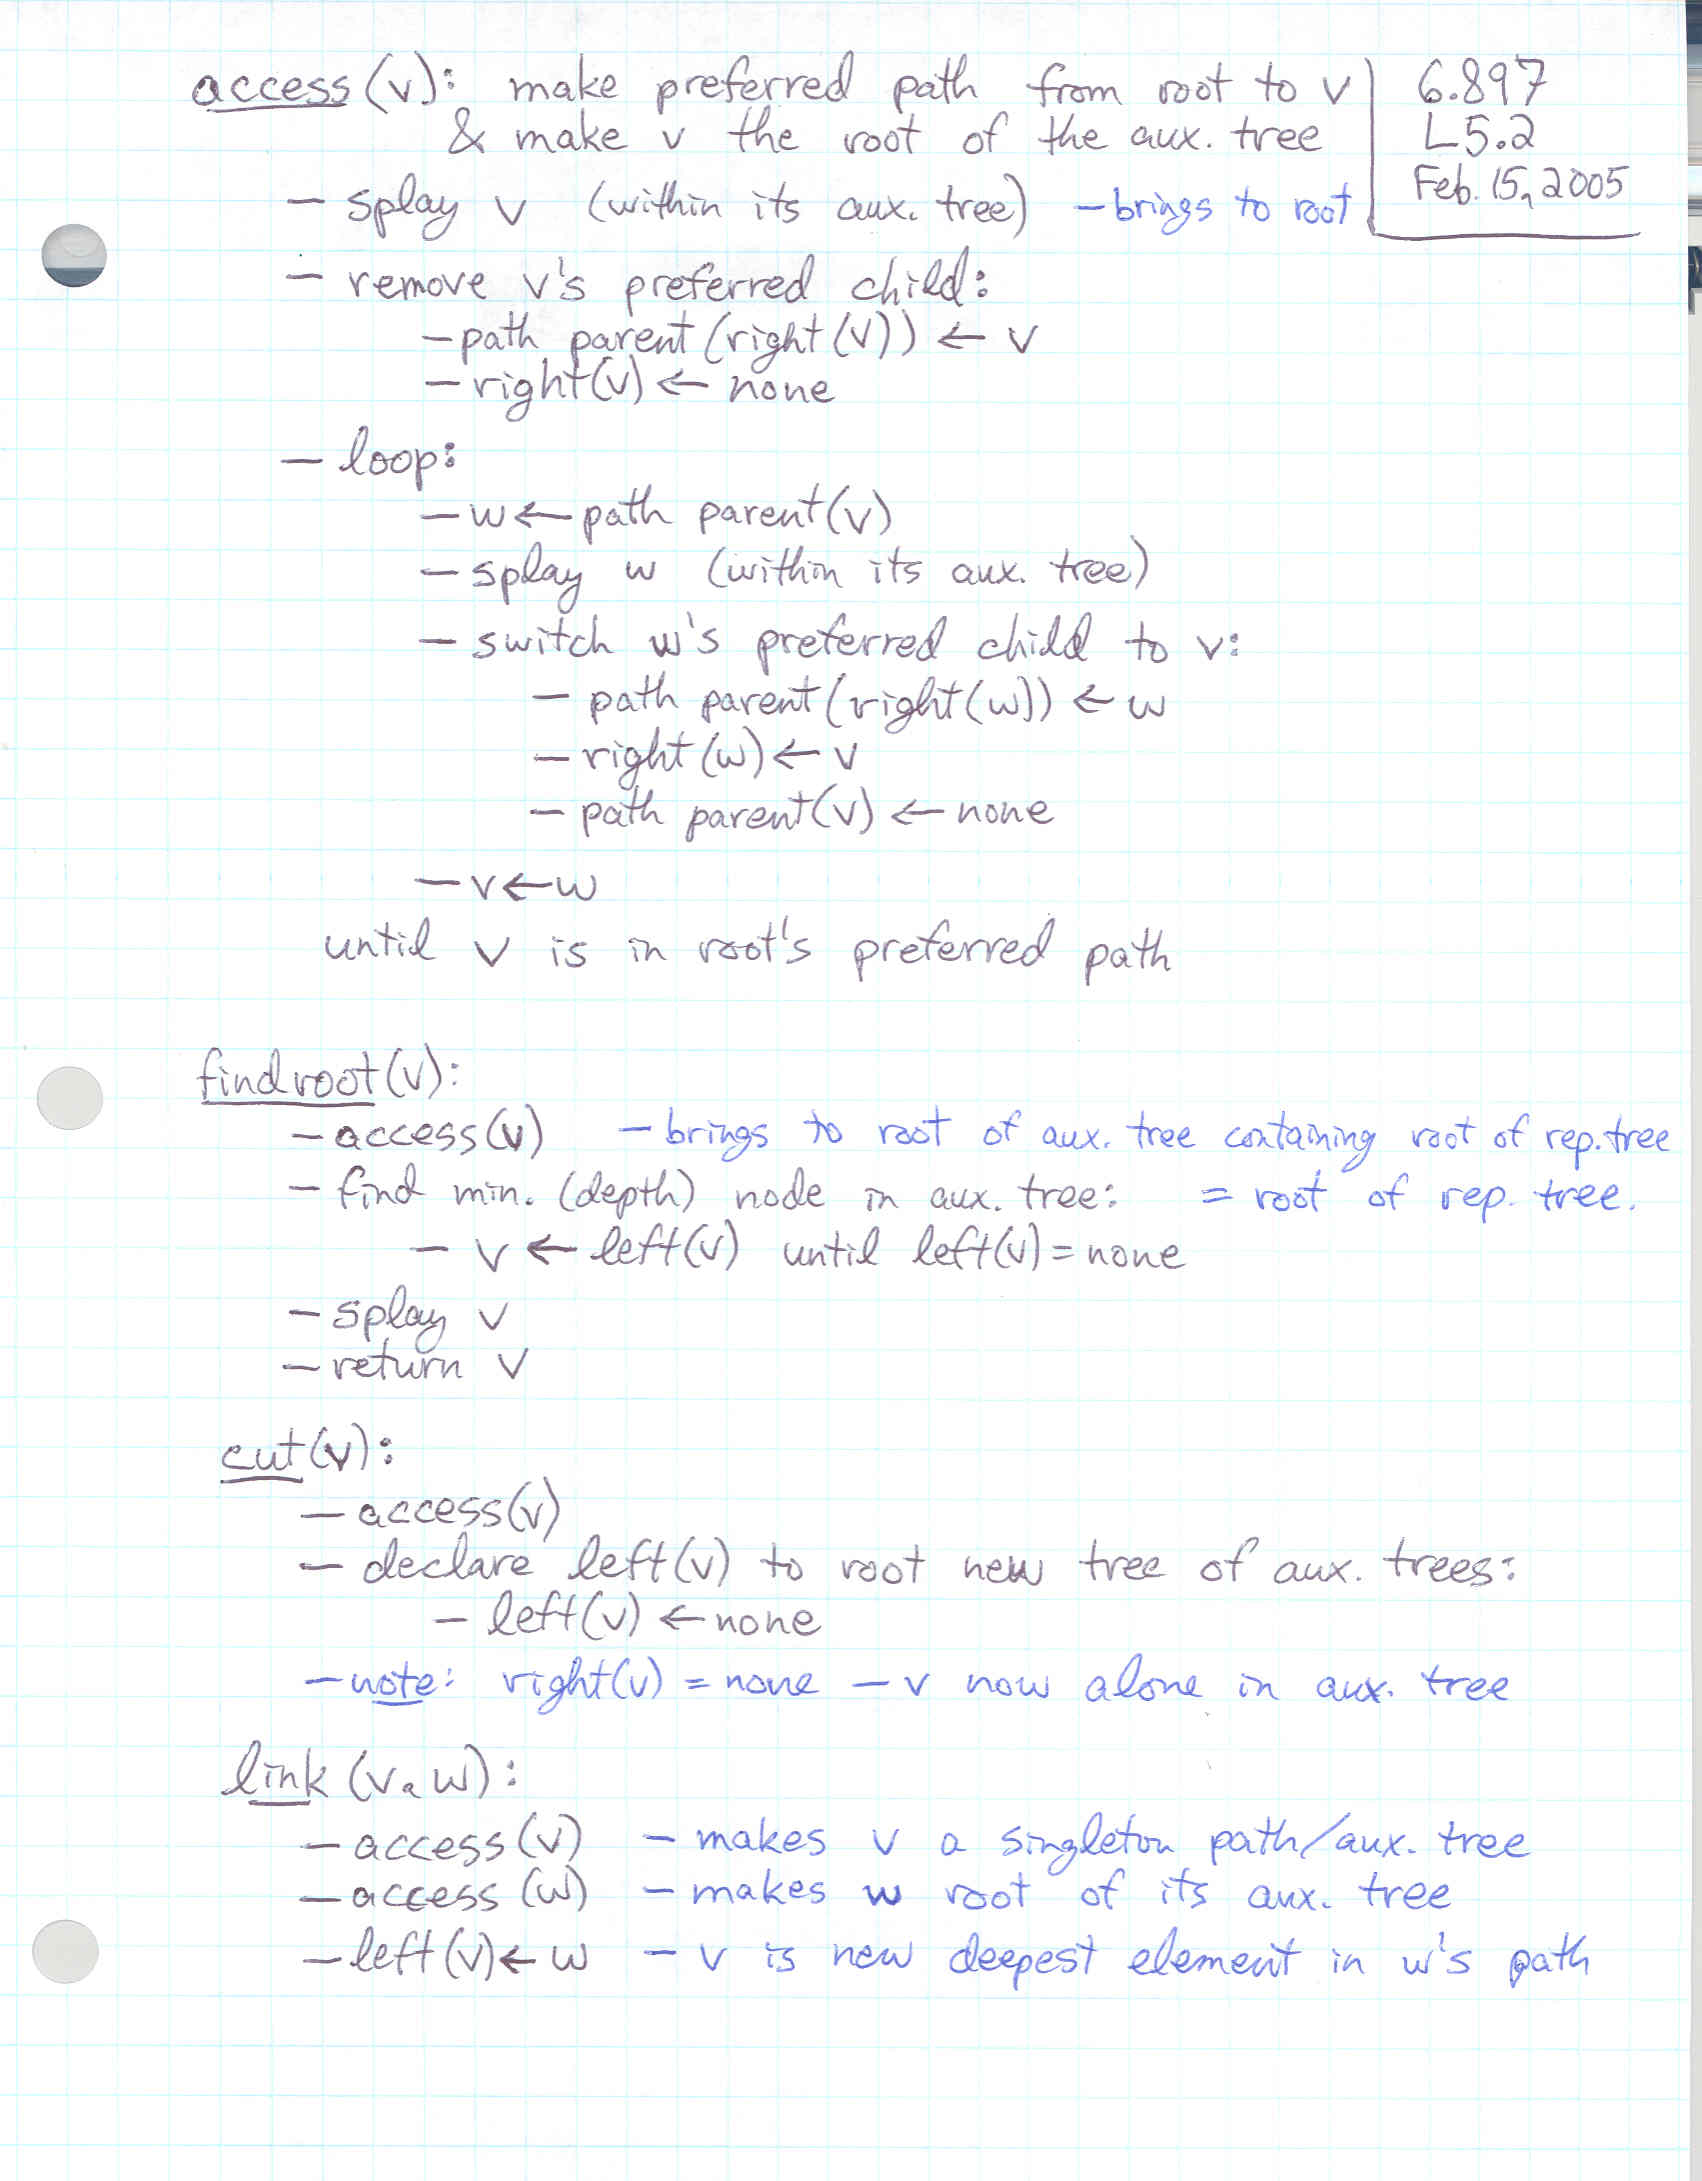 access(v): make preferred path from root to v
& make v the root of the aux. tree
6.897
L5.2
Feb. 15, 2005
- splay v (within its aux. tree) - brings to root
- remove v's preferred child:
- path parent(right(v)) ← v
- right(v) ← none
- loop:
- w ← path parent(v)
- splay w (within its aux. tree)
- switch w's preferred child to v:
- path parent(right(w)) ← w
- right(w) ← v
- path parent(v) ← none
- v ← w
until v is in root's preferred path
findroot(v):
- access(v) - brings to root of aux. tree containing root of rep. tree
- find min. (depth) node in aux. tree: = root of rep. tree.
- v ← left(v) until left(v) = none
- splay v
- return v
cut(v):
- access(v)
- declare left(v) to root new tree of aux. trees:
- left(v) ← none
- note: right(v) = none - v now alone in aux. tree
link(v, w):
- access(v) - makes v a singleton path/aux. tree
- access(w) - makes w root of its aux. tree
- left(v) ← w - v is new deepest element in w's path